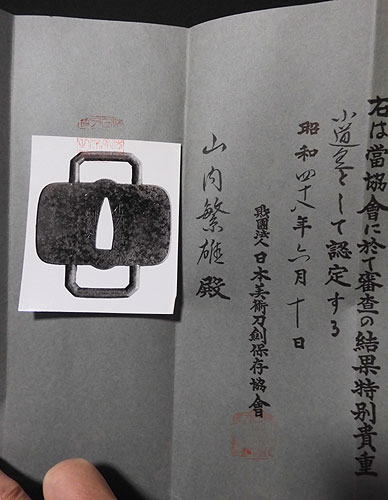 右は當協會に於て審査の結果特別貴重
小道具として認定する
昭和四十八年六月十日
財團法人日本美術刀劍保存協會
山内繁雄殿